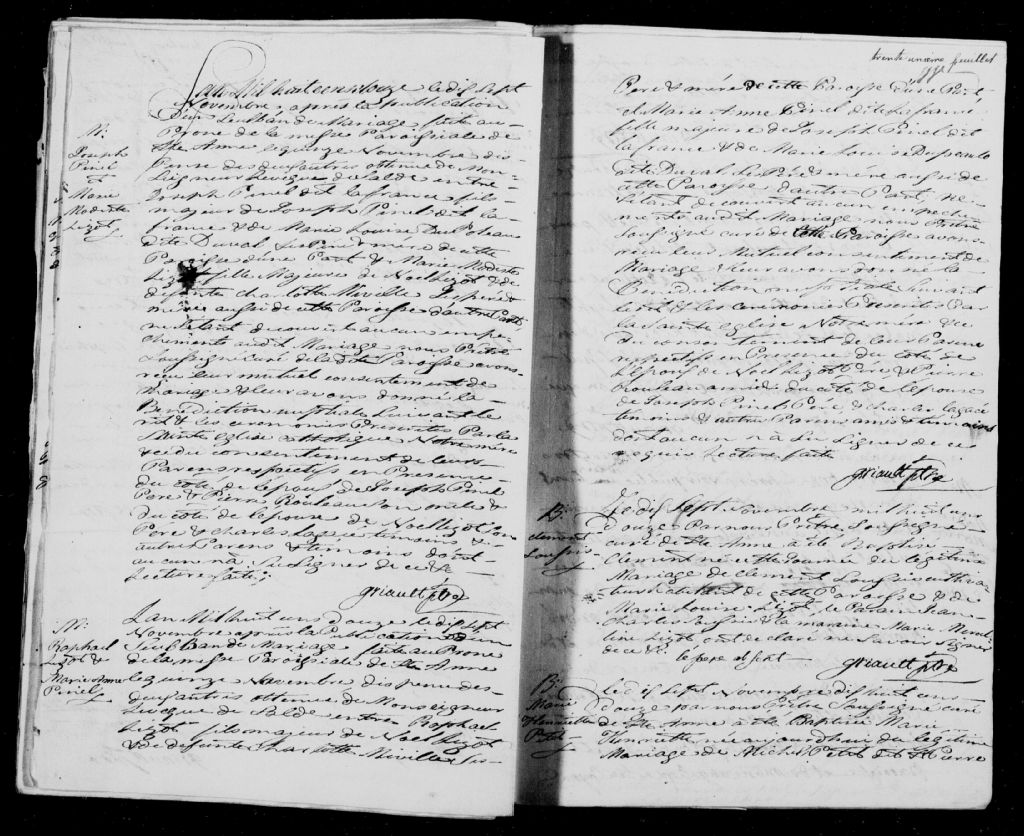 L'an Mil huit cens douze le dix sept
Novembre, après la publication
d'un seul Ban de Mariage faite au
Prone de la messe Paroissiale de
Ste Anne le quinze Novembre dis
pense des deux autres obtenue de Mon
Seigneur L'evêque de Salde entre
M:
Joseph
Pinel
&
Marie
Modeste
Lizot
Joseph Pinel dit la france fils
majeur de Joseph Pinel dit la
france & de Marie Louise
dite Duval ses Père & mère de cette
Paroisse d'une Part & Marie Modeste
Lizot fille Majeure de Noel Lizot & de
défunte Charlotte Miville ses père &
mère aussi de cette Paroisse d'autre Part
ne s'étant découvert aucun empe
chements audit Mariage nous Prêtre
Soussigné curé de la dite Paroisse avons
reçu leur mutuel consentement de
Mariage & leur avons donné la
Bénédiction nuptiale suivant le
rit & les ceremonies Prescrites Par la
Sainte eglise catholique Notre mère
& ce du consentement de leurs
Parens respectifs en Presence
du côté de lepoux de Joseph Pinel
Père & Pierre Rouleau son oncle &
du côté de lepouse de Noel Lizot son
Père & Charles temoins &
autres Parens & temoins dont
aucun n'a Su Signer de ce &c
Lecture faite;
griault ptre
M:
Raphael
Lizot &
Marie Anne
Pinel
L'an Mil huit cens douze le dix sept
Novembre après la Publication d'un
Seul Ban de Mariage faite au Prone
de la messe Paroissiale de Ste Anne
le quinze Novembre dispense des
deux autres obtenue de Monseigneur
L'evêque de Salde entre Raphael
Lizot fils majeur de Noel Lizot
& de defunte Charlotte Miville ses
trente unieme feuillet
Père & mère de cette Paroisse d'une Part
& Marie Anne Pinel dit la france
fille majeure de Joseph Pinel dit
la france & de Marie Louise
dite Duval ses Père & mère aussi de
cette Paroisse d'autre Part, ne
s'étant découvert aucun empeche
ments audit Mariage nous Prêtre
Soussigné curé de cette Paroisse avons
reçu leur Mutuel consentement de
Mariage & leur avons donné la
Bénédiction nuptiale suivant
le rit & les ceremonies Prescrites Par
la Sainte eglise Notre mère & ce
du consentement de leur Parens
respectifs en Presence du côté de
lepoux de Noel Lizot Père & Pierre
Rouleau ami & du côté de lepouse
de Joseph Pinel Père & Charles
temoins & autres Parens amis & temoins
dont aucun n'a Su Signer de ce
requis Lecture faite
griault ptre
B:
Clement
Soussis
Le dix Sept Novembre mil huit cens
douze Par nous Prêtre Soussigné
curé de Ste Anne a été Baptisé
Clement né cette Journée du legitime
Mariage de Clement Soussis cultiva
teur habitant de cette Paroisse & de
Marie Louise Lizot le Parain Jean
Charles Soussis & la maraine Marie
Lizot ont declaré ne Savoir Signer
de ce &c. le père absent
griault ptre
B:
Marie
Henriette
Petit
Le dix Sept Novembre dix huit cens
douze par nous Prêtre Soussigné curé
de Ste Anne a été Baptisé Marie
Henriette née aujourdhui du legitime
Mariage de Michel Petit dit St Pierre